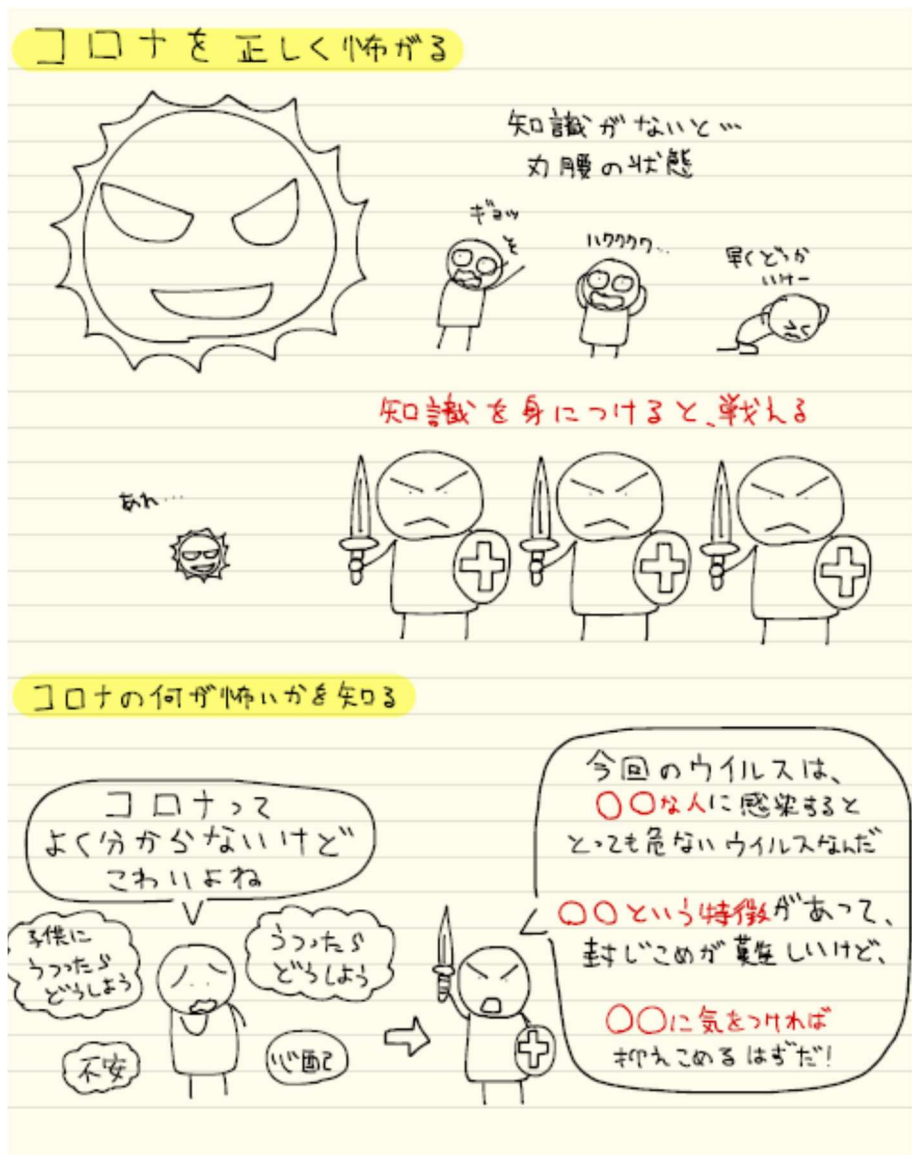 コロナを正しく怖がる
知識がないと…
丸腰の状態
ギョッ
を
ハワワワワ…
早くどっか
いけー
知識を身につけると、戦える
あれ…
コロナの何が怖いかを知る
コロナって
よく分からないけど
こわいよね
子供に
うつったら
どうしよう
うつったら
どうしよう
不安
心配
今回のウイルスは、
〇〇な人に感染すると
とっても危ないウイルスなんだ
〇〇という特徴があって、
封じこめが難しいけど、
〇〇に気をつければ
抑えこめるはずだ!